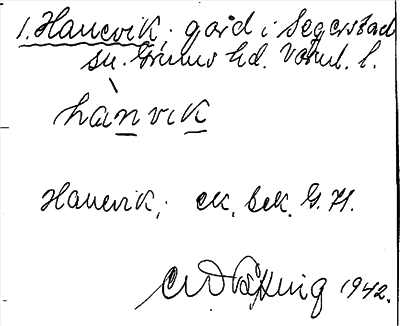 1. Hanevik, gård i Segerstad
sn. Grums hd. Värml. l.
hànvik
Hanevik, ek. bek. G. H.
1942.